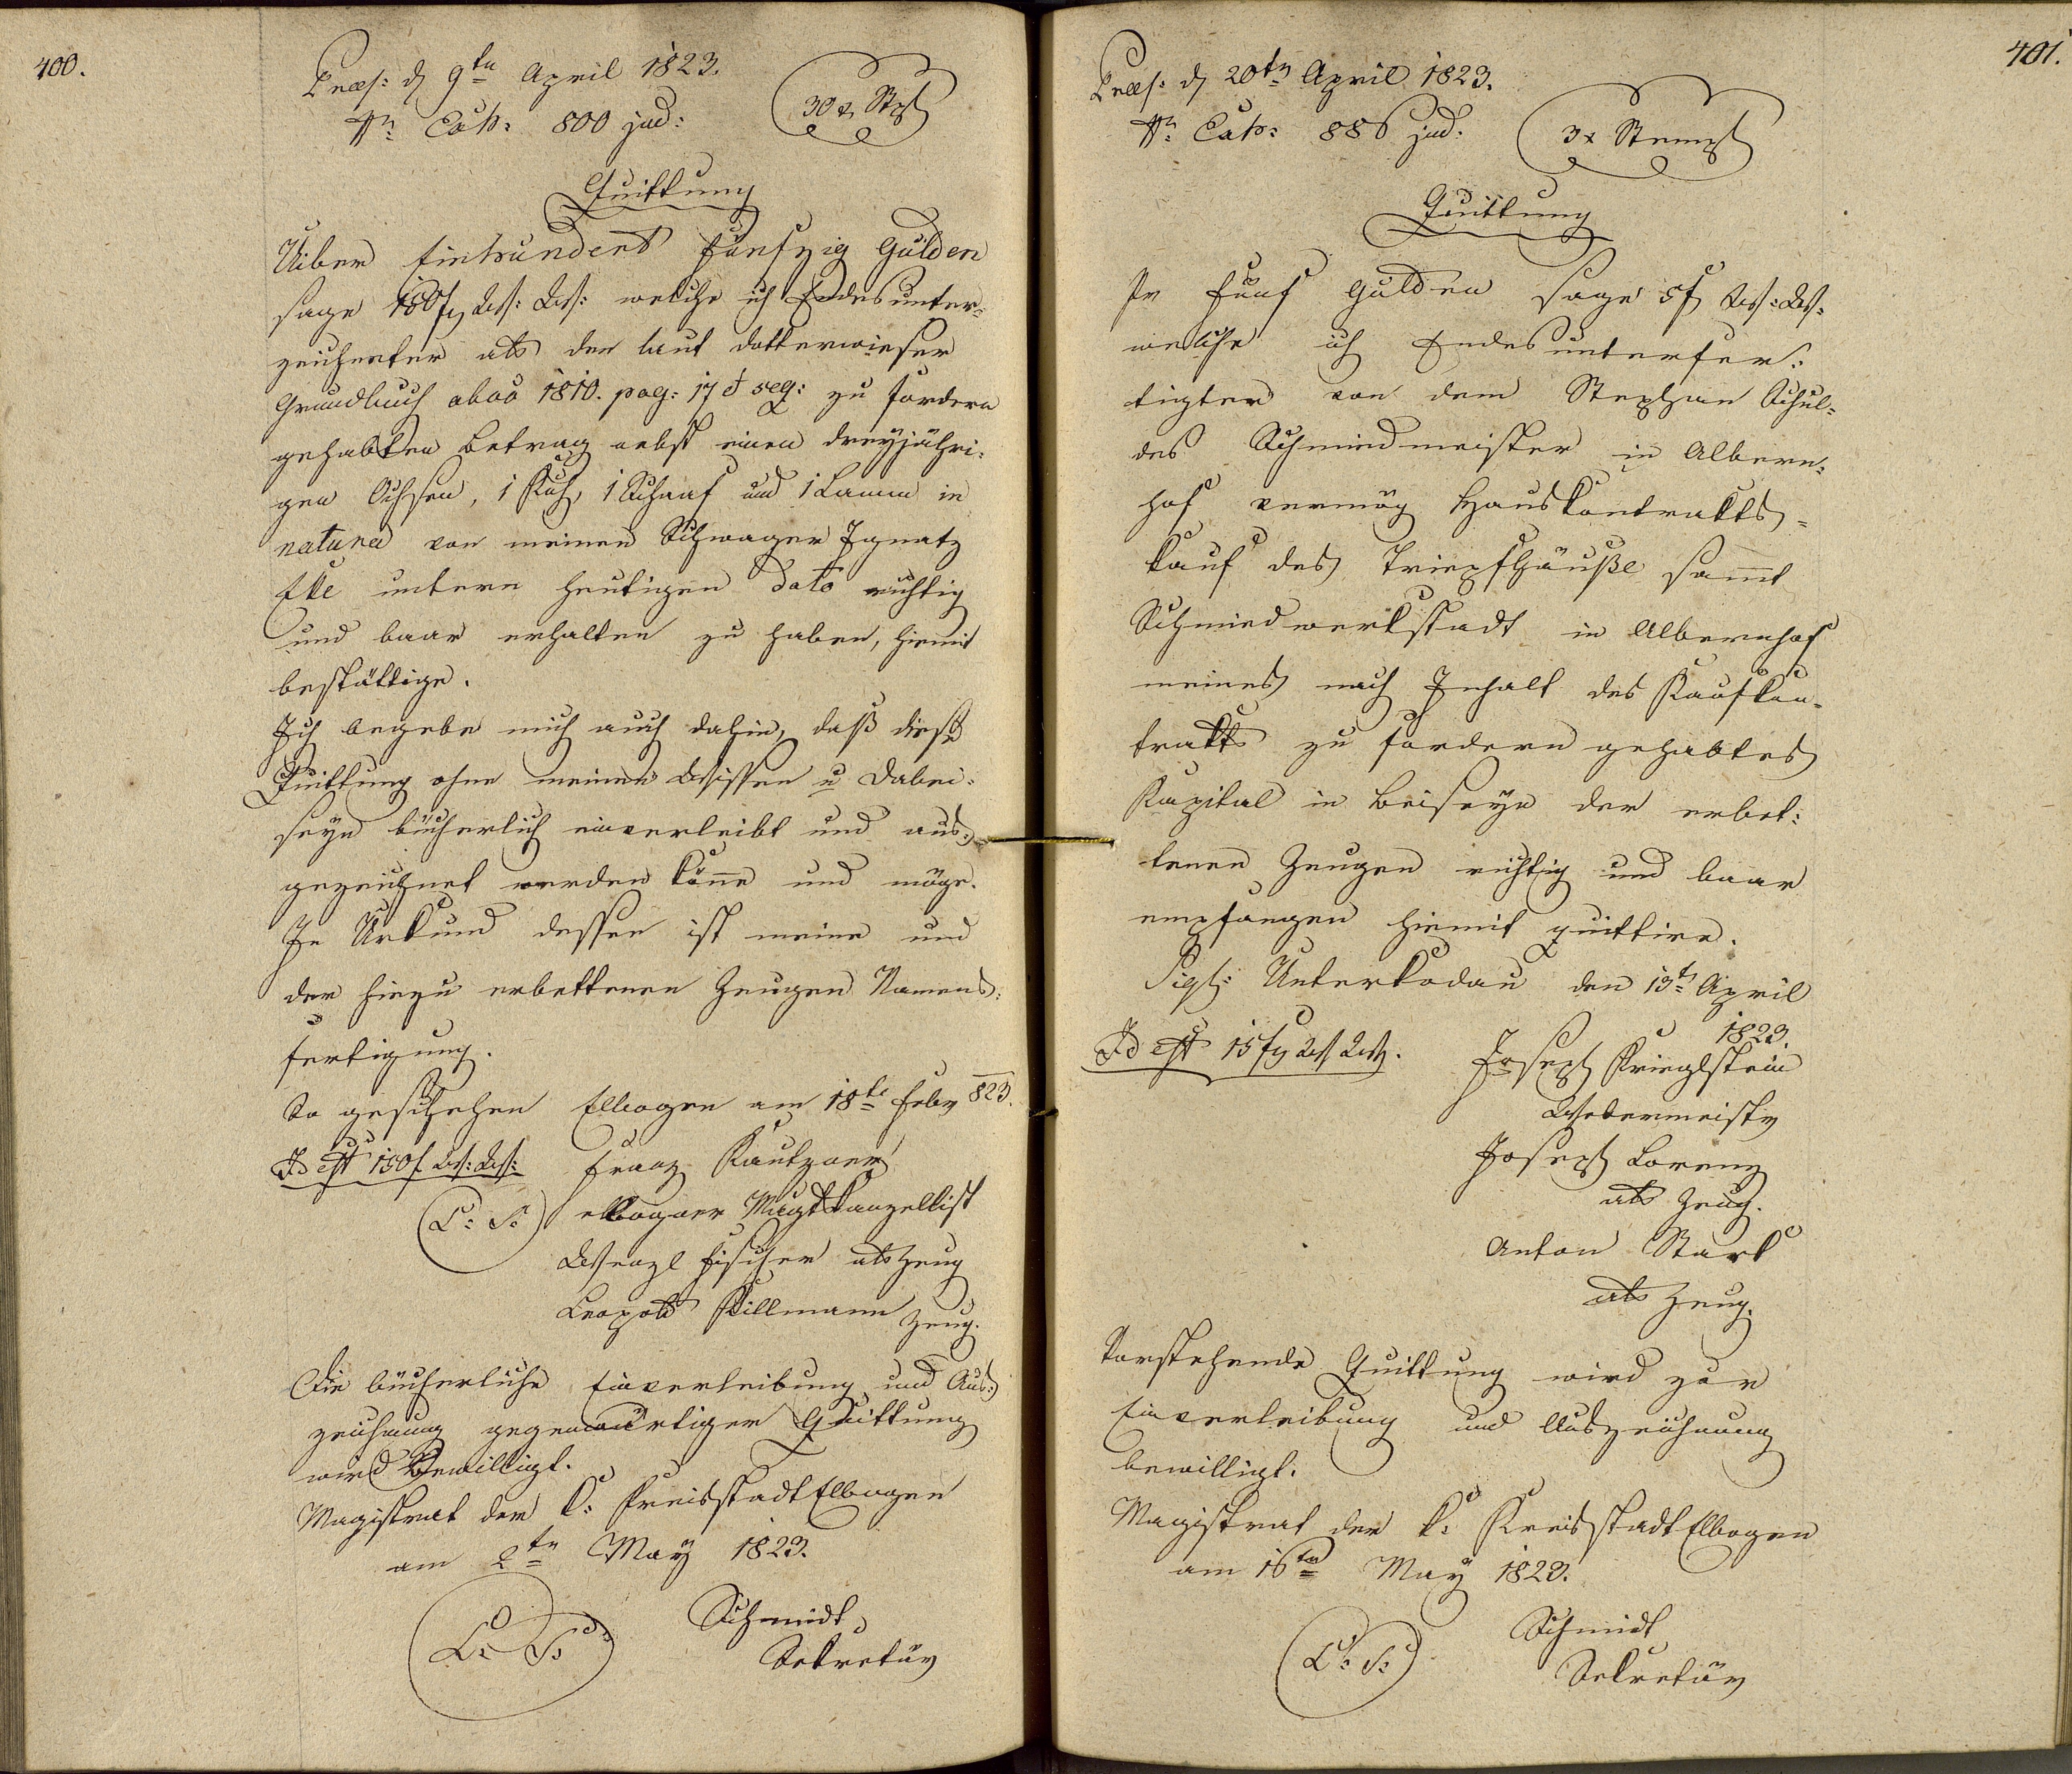 400.
Præs: d 9tn April 1823.
Nr. Exh: 800 jud:
30 x Stpl
Quittung
Uiber Einhundert Fünfzig Gulden
sage 150 f W: W: welche ich Endesunter-
zeichneter als den laut dotterwieser
Grundbuch abaō 1810. pag: 17 et seq: zu fordern
gehabten Betrag nebst einen dreyjähri-
gen Ochsen, 1 Kuh, 1 Schaaf und 1 Lamm in
natura von meinen Schwager Ignatz
Elle untern heutigen Dato richtig
und baar erhalten zu haben, hiemit
bestättige.
Ich begebe mich auch dahin, daß diese
Quittung ohne meinen Wissen u Dabei-
seyn bücherlich einverleibt und aus-
gezeichnet werden köñe und möge.
In Urkund dessen ist meine und
der hiezu erbettenen Zeugen Namens-
fertigung.
So geschehen Elbogen am 18te Febr 823.
Id est 150 f W: W: Franz Kautzner
L: S: elbogner Magtskanzellist
Wenzl Fischer als Zeug
Leopold Killmann Zeug.
Die bücherliche Einverleibung und Aus-
zeichnung gegenwärtiger Quittung
wird Bewilligt.
Magistrat der K: Kreisstadt Elbogen
am 2tn May 1823.
L: S: Schmidt
Sekretär
401.
Præs: d 20tn April 1823.
Nr. Exh: 886 jud:
3 x Stempl
Quittung
Pr Fünf Gulden sage 5 f W: W:
welche ich Endesunterfer-
tigter von dem Stephan Schul-
des Schmiedmeister in Albern-
hof vermög Hauskontrakts-
kauf des Häuße sam̄t
Schmiedwerkstadt in Albernhof
meines nach Inhalt des Kaufkon-
trakts zu fordern gehabtes
Kapital in Beiseyn der erbet-
tenen Zeugen richtig und baar
empfangen hiemit quittire.
Sigl: Unterkodau den 13t April
1823.
Id est 15 f W W. Joseph Krieglstein
Webermeistr
Joseph Lorenz
als Zeug.
Anton Stark
als Zeug.
Vorstehende Quittung wird zur
Einverleibung und Auszeichnung
bewilligt.
Magistrat der k: Kreisstadt Elbogen
am 16tn May 1823.
L: S: Schmidt
Sekretär